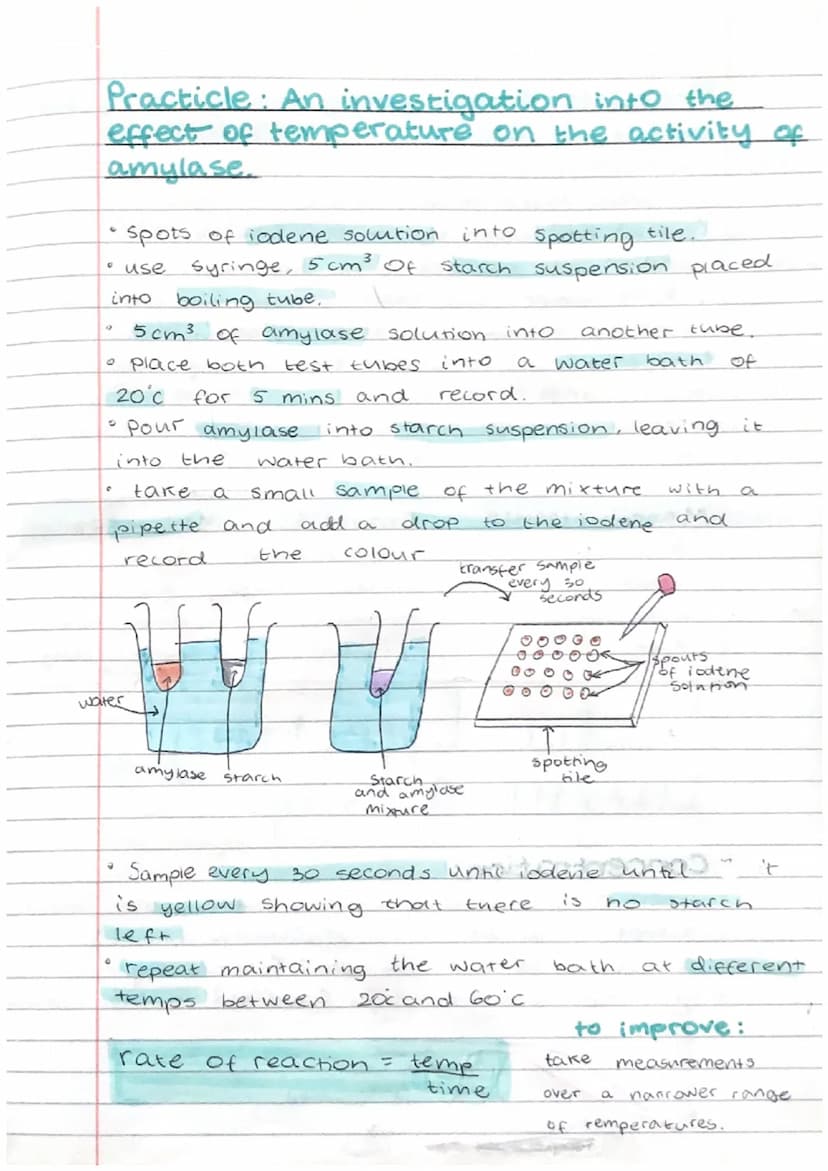 Practicle: An investigation into the
effect of temperature on the activity of
amylase.
• Spots of iodene solution into spotting tile.
• use syringe, 5cm³ of starch suspension placed
into boiling tube.
• 5cm³ of amylase solution into another tube.
• place both test tubes into a water bath of
20°c for 5 mins and record.
• pour amylase into starch suspension, leaving it
into the water bath.
• take a small sample of the mixture with a
pipette and add a drop to the iodene and
record the colour
transfer sample
every 30
seconds
spouts
of iodine
solution
water
amylase starch
Starch
and amylase
mixture
spotting
tile
• Sample every 30 seconds until iodene until
is yellow showing that there is no starch
left
• repeat maintaining the water bath at different
temps between 20°c and 60°c
to improve:
rate of reaction = temp
time
take measurements
over a narrower range
of remperatures.